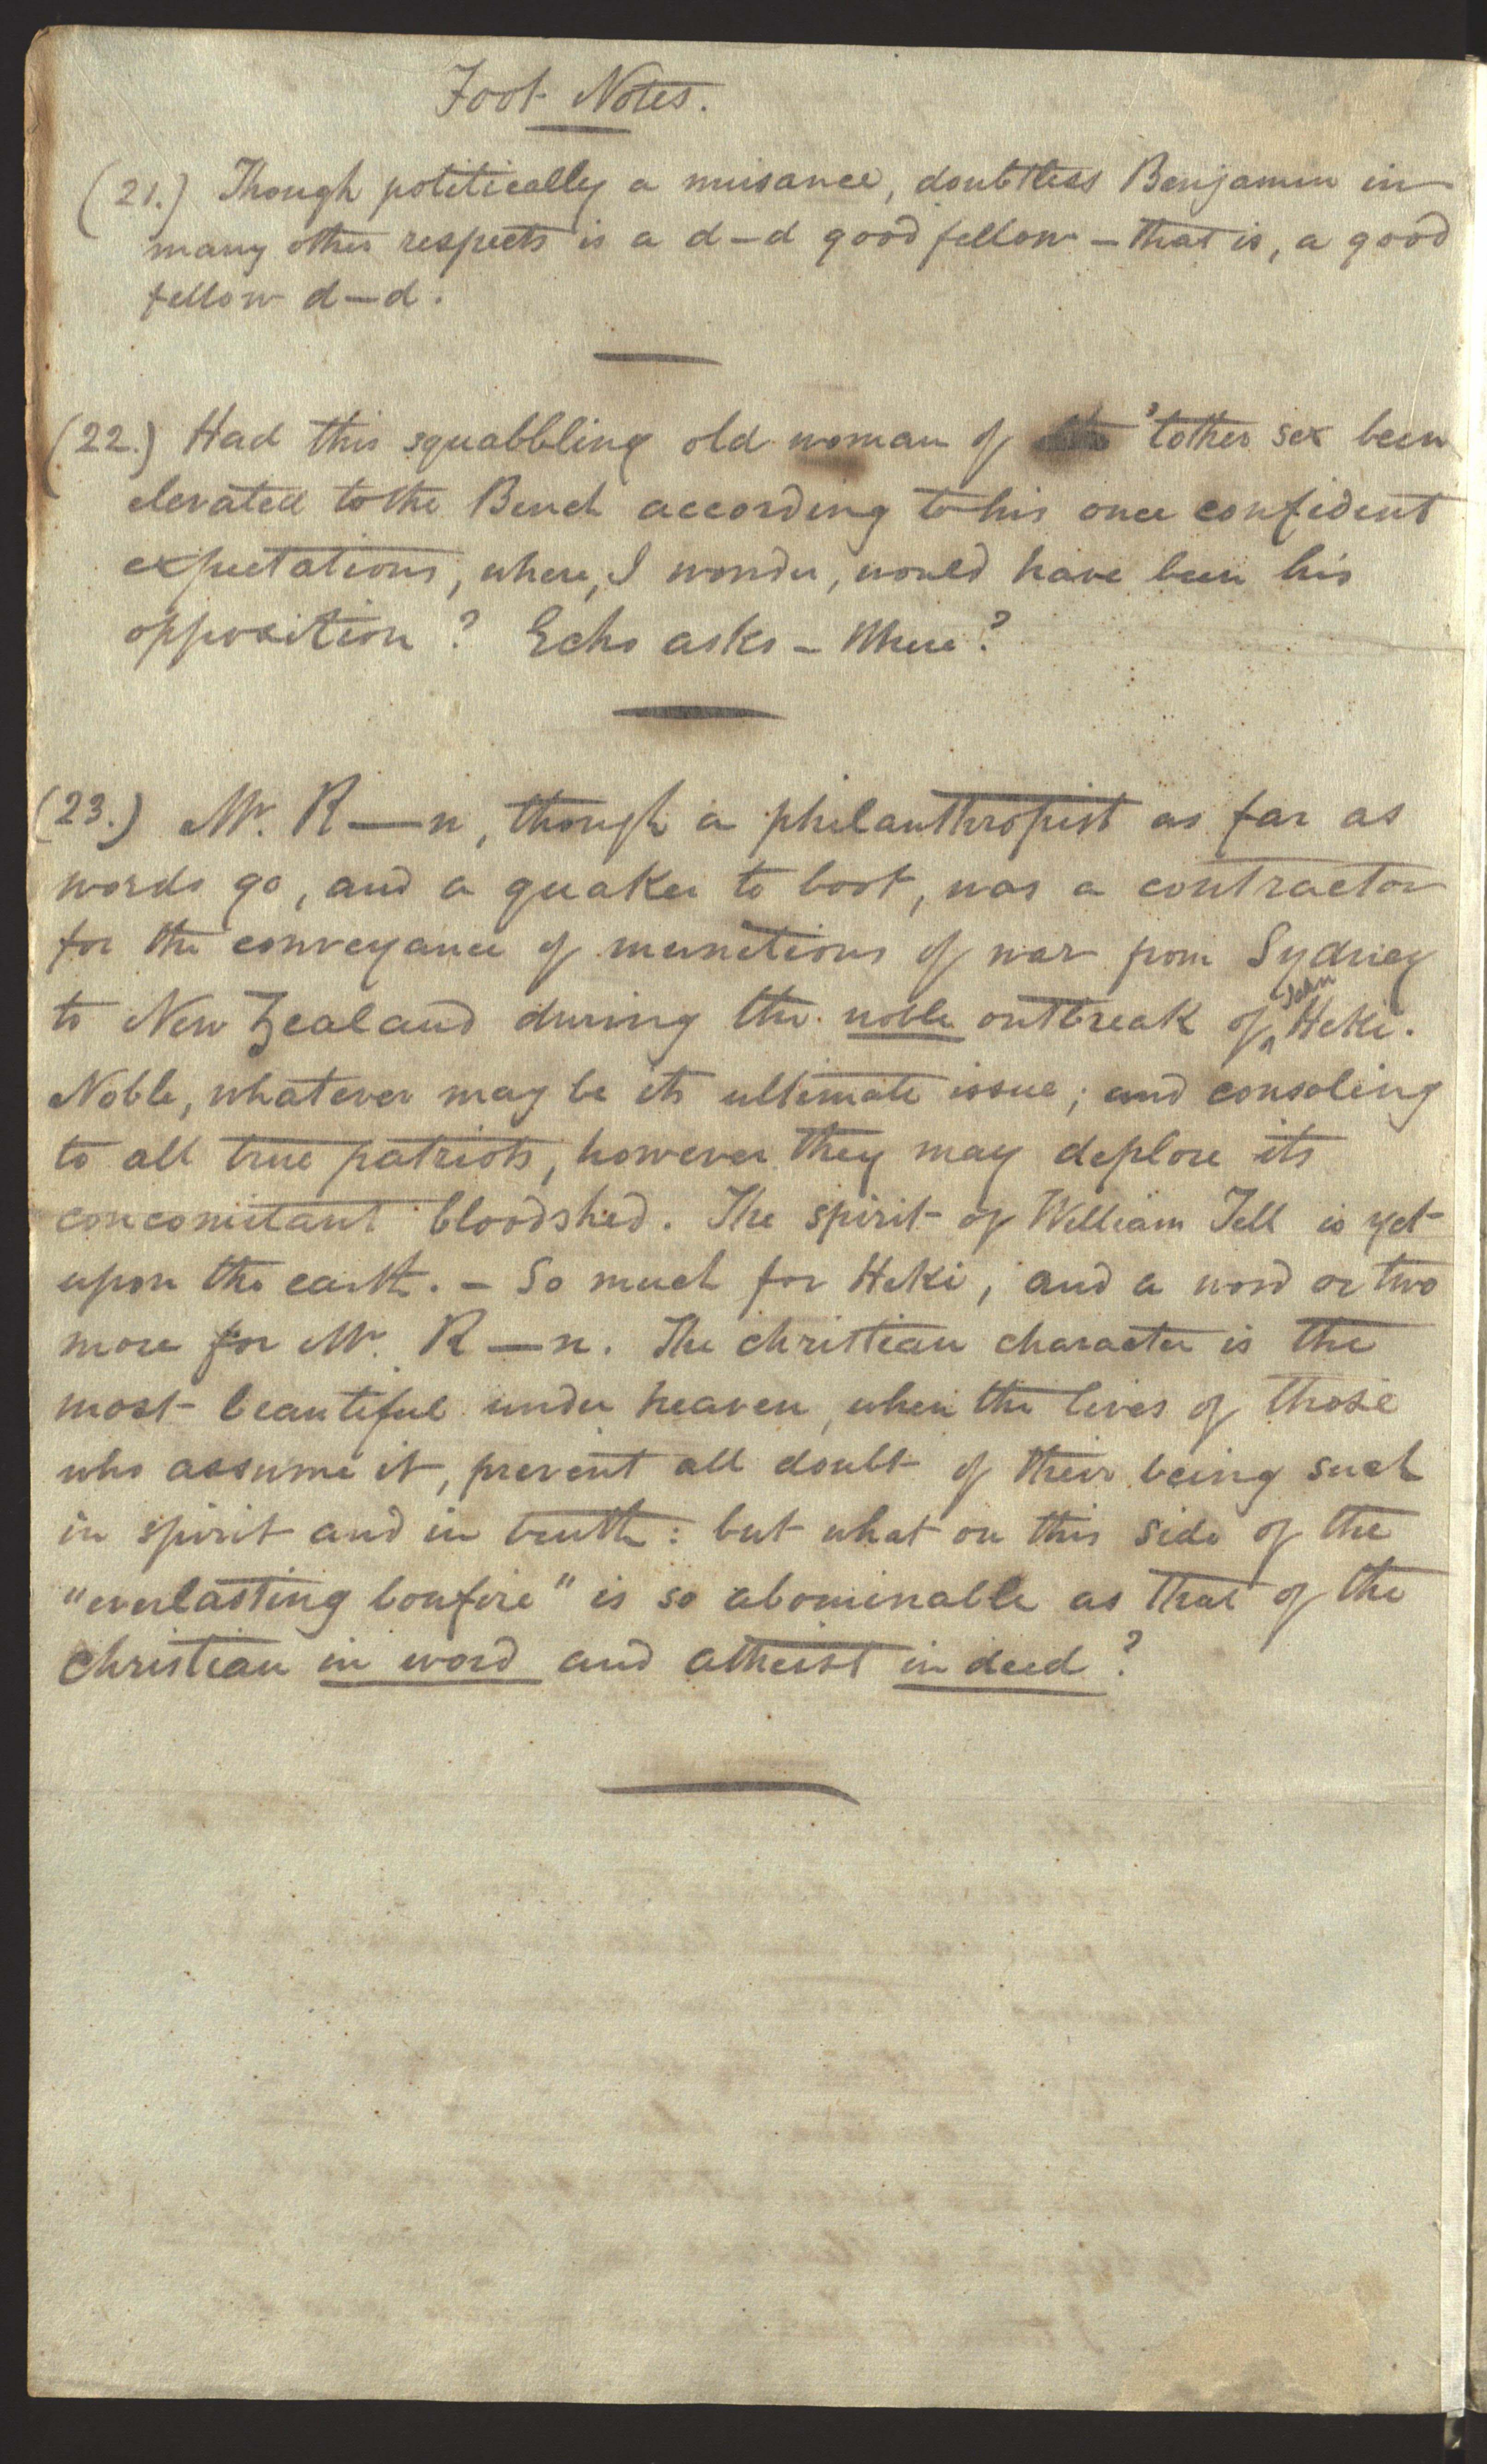 Foot Notes.
(21.) Though politically a nuisance, doubtless Benjamin in
many other respects is a d—d good fellow – that is, a good
fellow d—d.
(22.) Had this squabbling old woman of 'tother sex been
elevated to the Bench according to his once confident
expectations, where, I wonder, would have been his
opposition? Echo asks – Where?
(23.) Mr. R—n, though a philanthropist as far as
words go, and a quaker to boot, was a contractor
for the conveyance of munitions of war from Sydney
to New Zealand during the noble outbreak of John Heki.
Noble, whatever may be its ultimate issue; and consoling
to all true patriots, however they may deplore its
concomitant bloodshed. The spirit of William Tell is yet
upon the earth. – So much for Heki, and a word or two
more for Mr. R—n. The christian character is the
most beautiful under heaven, when the lives of those
who assume it, prevent all doubt of their being such
in spirit and in truth: but what on this side of the
"everlasting bonfire" is so abominable as that of the
Christian in word and atheist in deed?